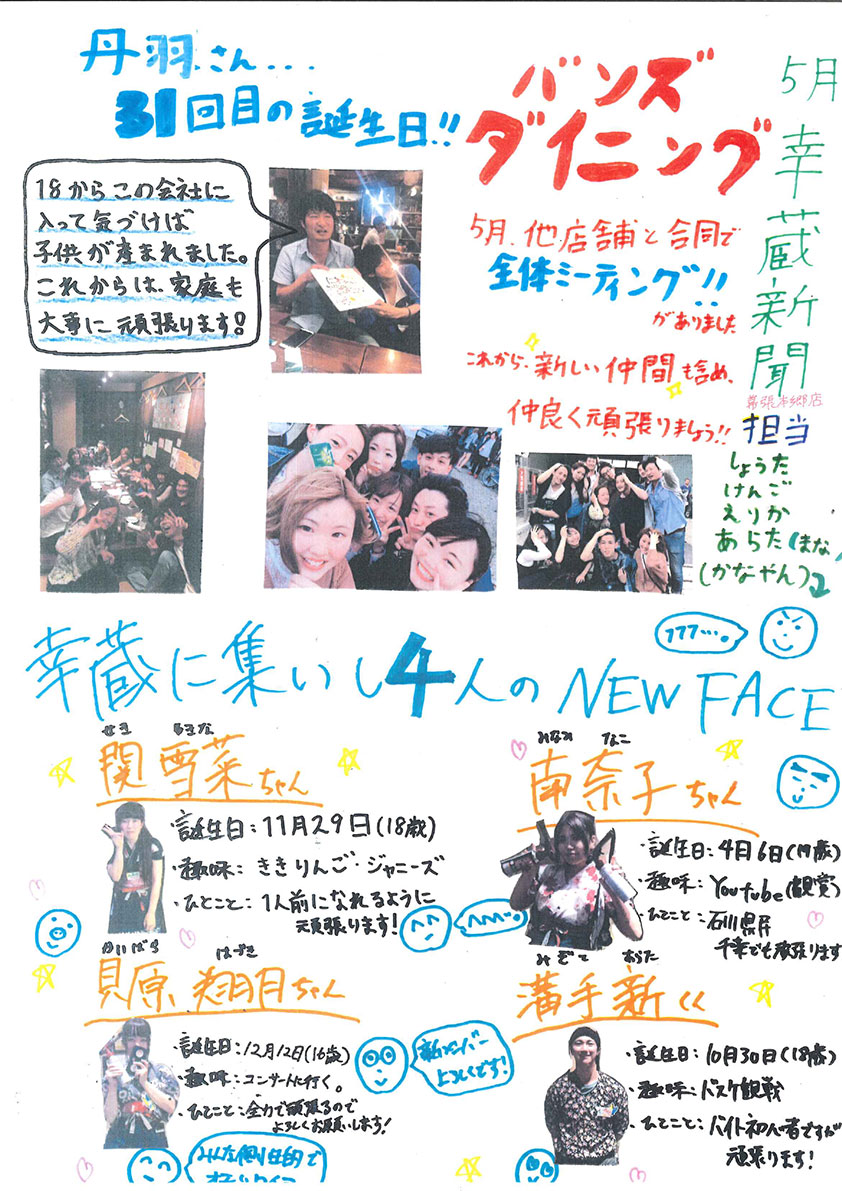 5月 幸蔵新聞
幕張本郷店
担当
しょうた
けんご
えりか
あらた(まな)
(かなやん)
バンズ
ダイニング
5月、他店舗と合同で
全体ミーティング!!
がありました
これから、新しい仲間も含め、
仲良く頑張りましょう!!
丹羽さん...
31回目の誕生日!!
18からこの会社に
入って気づけば
子供が産まれました。
これからは、家庭も
大事に頑張ります!
フフフ…。
幸蔵に集いし4人のNEW FACE
せき
関 雪菜ちゃん
・誕生日:11月29日(18歳)
・趣味:ききりんご・ジャニーズ
・ひとこと:1人前になれるように
頑張ります!
みなみ なこ
南奈子ちゃん
・誕生日:4月6日(19歳)
・趣味:YouTube(観賞)
・ひとこと:石川県民
千葉でも頑張ります
へへへ。
かいばら はづき
貝原 翔月ちゃん
・誕生日:12月12日(16歳)
・趣味:コンサートに行く。
・ひとこと:全力で頑張るので
よろしくお願いします!
新メンバー
よろしくです!
みぞて あらた
溝手新くん
・誕生日:10月30日(18歳)
・趣味:バスケ観戦
・ひとこと:バイト初心者ですが
頑張ります!
みんな個性的で